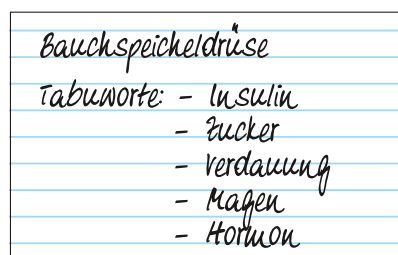 Bauchspeicheldrüse
Tabuworte: - Insulin
- Zucker
- Verdauung
- Magen
- Hormon